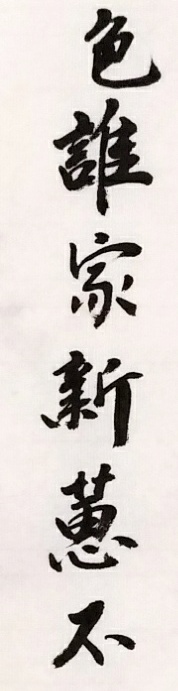 色誰家新蕙不